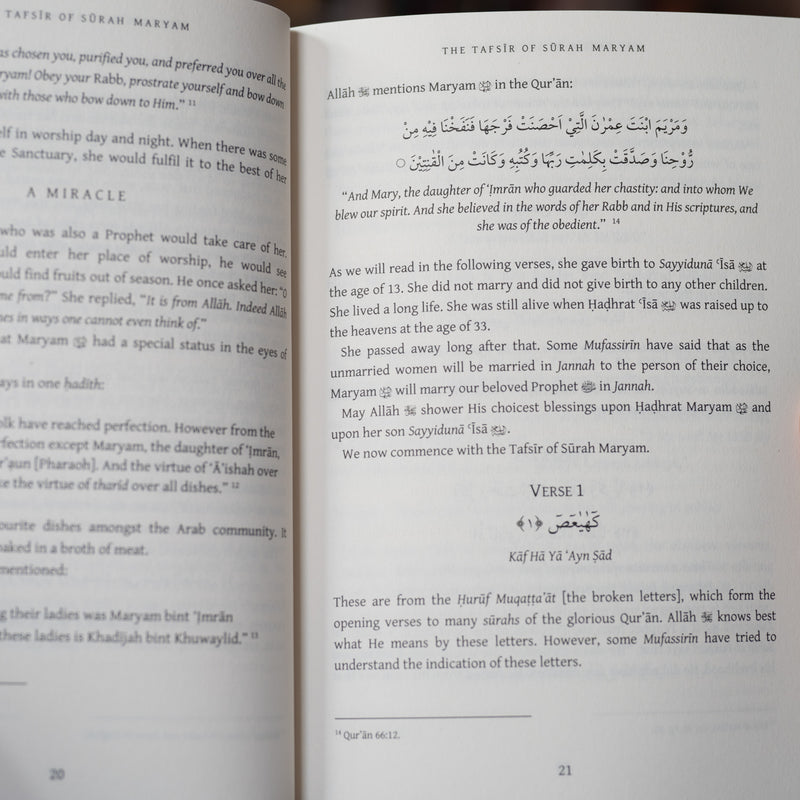 TAFSĪR OF SŪRAH MARYAM
as chosen you, purified you, and preferred you over all the
ryam! Obey your Rabb, prostrate yourself and bow down
with those who bow down to Him.” ¹¹
elf in worship day and night. When there was some
e Sanctuary, she would fulfil it to the best of her
A MIRACLE
who was also a Prophet would take care of her.
uld enter her place of worship, he would see
uld find fruits out of season. He once asked her: “O
me from?” She replied, “It is from Allāh. Indeed Allāh
es in ways one cannot even think of.”
at Maryam had a special status in the eyes of
ays in one ḥadīth:
olk have reached perfection. However from the
rfection except Maryam, the daughter of ʿImrān,
rʿaun [Pharaoh]. And the virtue of ʿĀʾishah over
ke the virtue of tharīd over all dishes.” ¹²
ourite dishes amongst the Arab community. It
oaked in a broth of meat.
mentioned:
g their ladies was Maryam bint ʿImrān
these ladies is Khadījah bint Khuwaylid.” ¹³
20
THE TAFSĪR OF SŪRAH MARYAM
Allāh ﷻ mentions Maryam in the Qurʾān:
وَمَرْيَمَ ابْنَتَ عِمْرٰنَ الَّتِيْ اَحْصَنَتْ فَرْجَهَا فَنَفَخْنَا فِيْهِ مِنْ
رُّوْحِنَا وَصَدَّقَتْ بِكَلِمٰتِ رَبِّهَا وَكُتُبِهٖ وَكَانَتْ مِنَ الْقٰنِتِيْنَ ○
“And Mary, the daughter of ʿImrān who guarded her chastity: and into whom We
blew our spirit. And she believed in the words of her Rabb and in His scriptures, and
she was of the obedient.” ¹⁴
As we will read in the following verses, she gave birth to Sayyidunā ʿĪsā at
the age of 13. She did not marry and did not give birth to any other children.
She lived a long life. She was still alive when Ḥaḍhrat ʿĪsā was raised up to
the heavens at the age of 33.
She passed away long after that. Some Mufassirīn have said that as the
unmarried women will be married in Jannah to the person of their choice,
Maryam will marry our beloved Prophet ﷺ in Jannah.
May Allāh ﷻ shower His choicest blessings upon Ḥaḍhrat Maryam and
upon her son Sayyidunā ʿĪsā.
We now commence with the Tafsīr of Sūrah Maryam.
VERSE 1
كٓهٰيٰعٓصٓ ﴿١﴾
Kāf Hā Yā ʿAyn Ṣād
These are from the Ḥurūf Muqaṭṭaʿāt [the broken letters], which form the
opening verses to many sūrahs of the glorious Qurʾān. Allāh ﷻ knows best
what He means by these letters. However, some Mufassirīn have tried to
understand the indication of these letters.
¹⁴ Qurʾān 66:12.
21